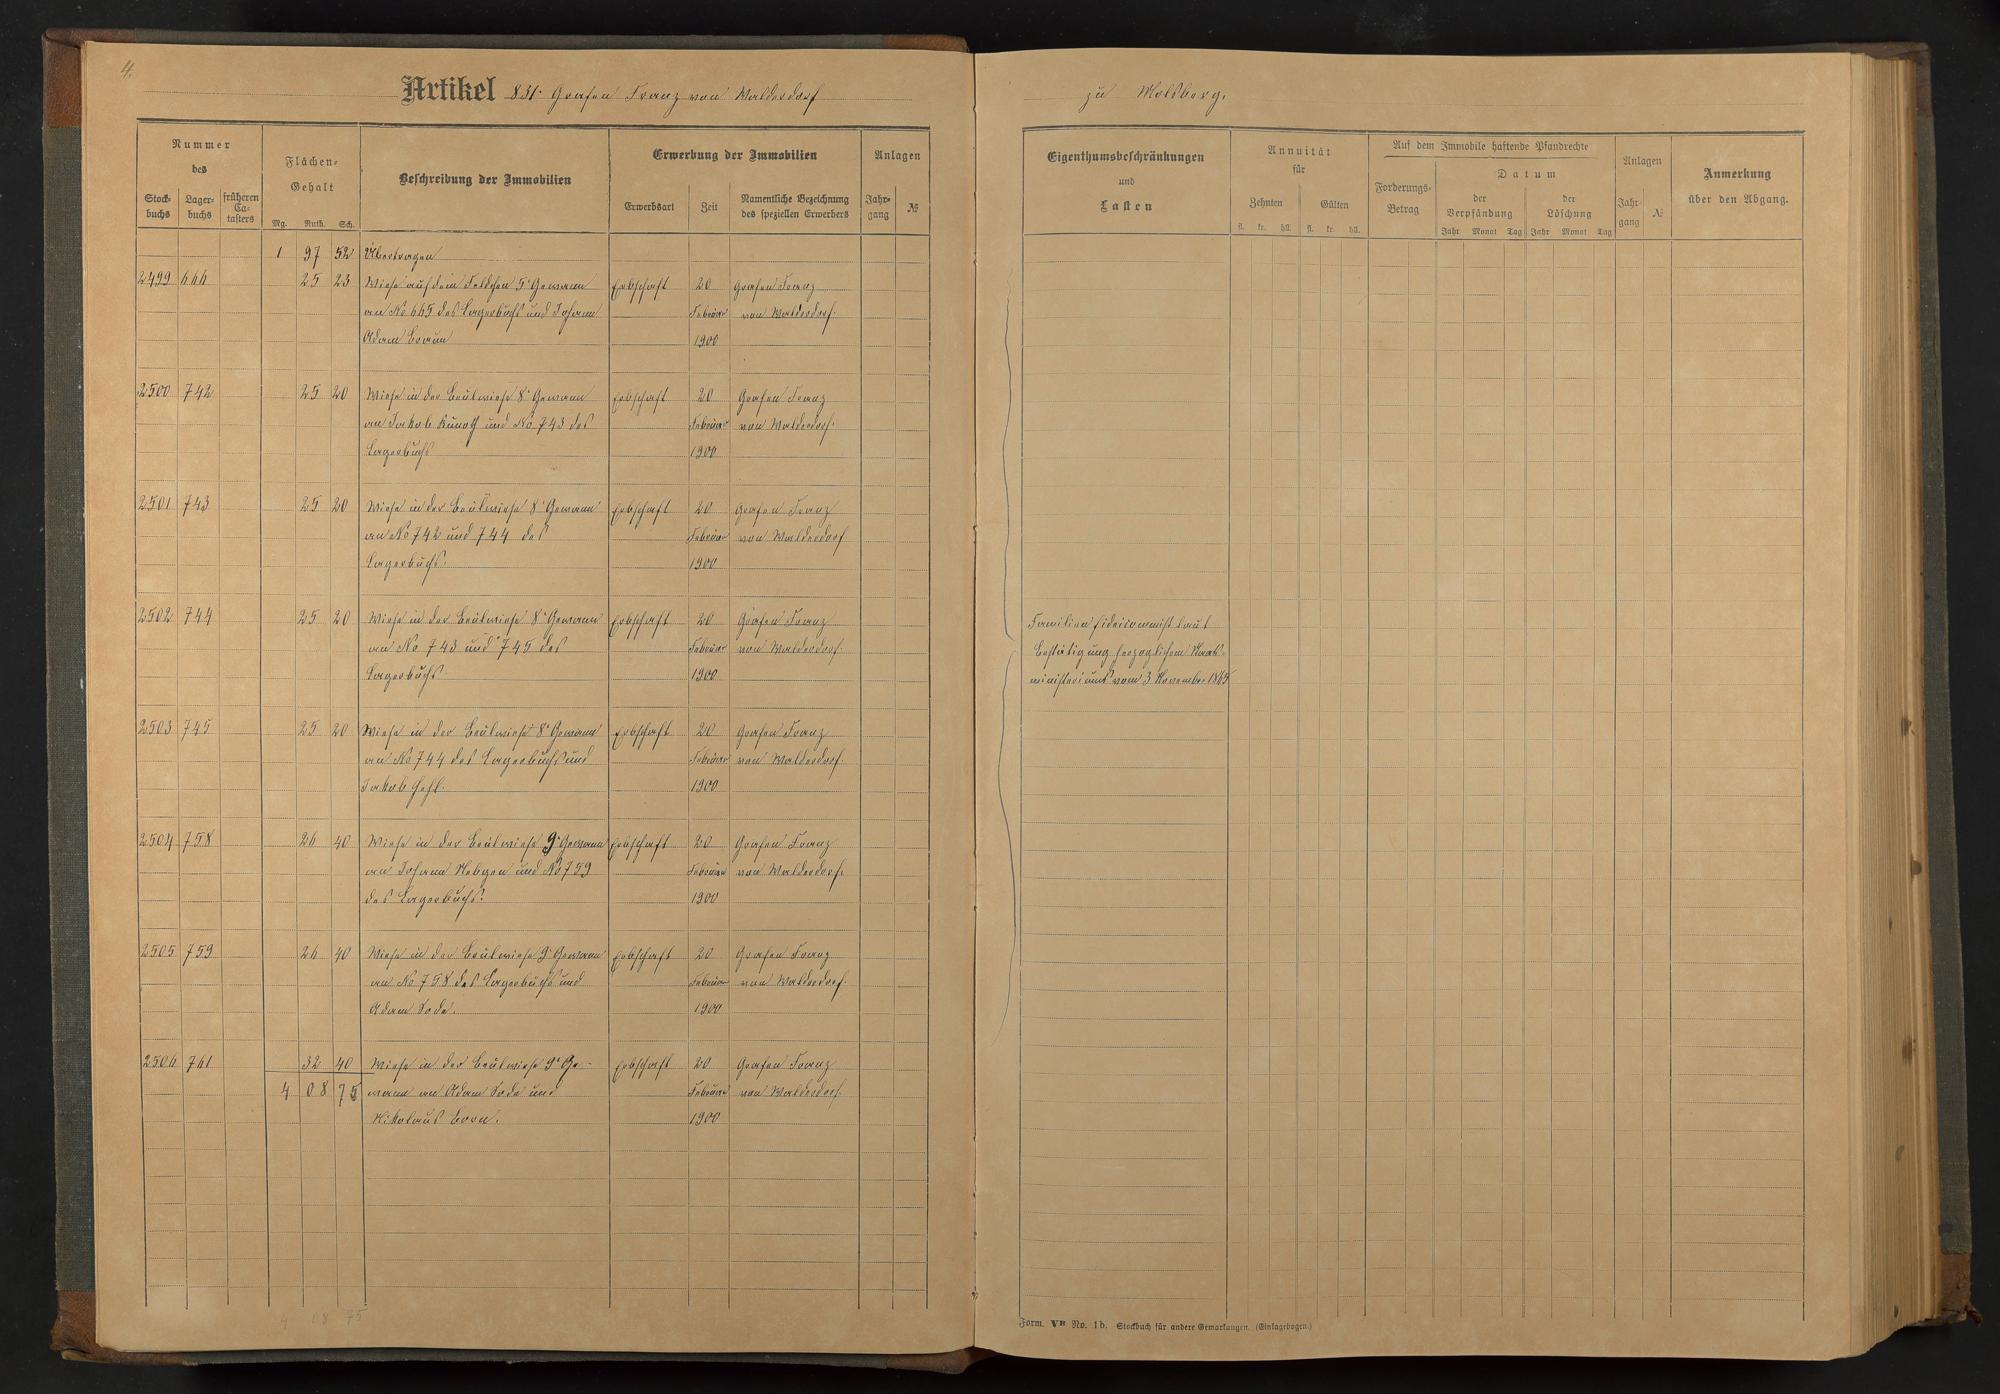 4.
Artikel 831. Grafen Franz von Walderdorf
Nummer des
Flächen-Gehalt
Beschreibung der Immobilien
Erwerbung der Immobilien
Anlagen
Stock-buchs
Lager-buchs
früheren Ca-tasters
Mg. Ruth. Sch.
Erwerbsart
Zeit
Namentliche Bezeichnung des speziellen Erwerbers
Jahr-gang
№
1 97 52 Übertragen
2499 666 25 23 Wiese auf dem Feldchen 5t Gewann Erbschaft 20 Grafen Franz
an No 665 des Lagerbuchs und Johann Februar von Walderdorf.
Adam Braun 1900
2500 742 25 20 Wiese in der Beulwiese 8t Gewann Erbschaft 20 Grafen Franz
an Jakob Kunoth und No 743 des Februar von Walderdorf.
Lagerbuchs 1900
2501 743 25 20 Wiese in der Beulwiese 8t Gewann Erbschaft 20 Grafen Franz
an No 742 und 744 des Februar von Walderdorf
Lagerbuchs. 1900
2502 744 25 20 Wiese in der Beulwiese 8t Gewann Erbschaft 20 Grafen Franz
an No 743 und 745 des Februar von Walderdorf.
Lagerbuchs 1900
2503 745 25 20 Wiese in der Beulwiese 8t Gewann Erbschaft 20 Grafen Franz
an No 744 des Lagerbuchs und Februar von Walderdorf.
Jakob Hehl. 1900
2504 758 26 40 Wiese in der Beulwiese 9t Gewann Erbschaft 20 Grafen Franz
an Johann Hebgen und No 759 Februar von Walderdorf.
des Lagerbuchs. 1900
2505 759 26 40 Wiese in der Beulwiese 9t Gewann Erbschaft 20 Grafen Franz
an No 758 des Lagerbuchs und Februar von Walderdorf.
Adam Sode. 1900
2506 761 32 40 Wiese in der Beulwiese 9t Ge- Erbschaft 20 Grafen Franz
4 08 75 wann an Adam Sode und Februar von Walderdorf.
Nikolaus Born. 1900
4 08 75
zu Molsberg.
Eigenthumsbeschränkungen und Lasten
Annuität für
Zehnten
Gülten
fl. kr. hll. fl. kr. hll.
Auf dem Immobile haftende Pfandrechte
Forderungs-Betrag
Datum
der Verpfändung
der Löschung
Jahr Monat Tag Jahr Monat Tag
Anlagen
Jahr-gang
№
Anmerkung über den Abgang.
Familienfideicommiß laut
Bestätigung herzoglichen Staats-
ministeriums vom 3 November 1865
Form. VB No. 1b. Stockbuch für andere Gemarkungen. (Einlagebogen.)